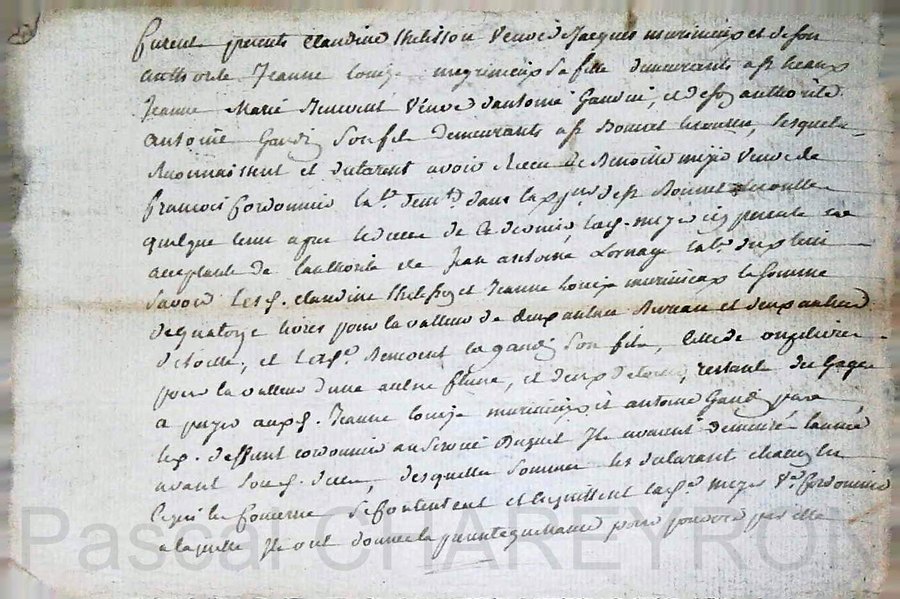 furent presents Claudine Thelisson veuve de Jacques murinieux et de son
authorité Jeanne Louise murinieux sa fille demeurants a st heand
Jeanne Marie Bencoint veuve dantoine Gaudin, et de son authorité
antoine Gaudin son fils demeurants a st Bonnet, lesquels
Reconnaissent et declarent avoir Receu de Benoite veuve de
francois Cordonnier lab. dem. dans la de st Bonnet
quelque tems apres le deces de Ce dernier, lad. icy presente et
acceptante de l'authorité de Jean antoine lab. du
Savoir lesd. claudine et Jeanne Louise murinieux la somme
de quatorze livres pour la valleur de deux aulnes Bureau et deux aulnes
de toille, et lad. Bencoint la gaudin son fils, Celle de onze livres
pour la valleur d'une aulne, et deux de toille, restante des Gages
a payer auxd. Jeanne Louise murinieux et antoine Gaudin par
led. deffunt cordonnier au service duquel Ils avaient demeuré l'année
avant sond. deces, desquelles sommes les declarant chacun en
ce qui les concerne se contentent et en quittent lad. Ve Cordonnier
a laquelle Ils ont donné la presente quittance pour par elle
Pascal CHAREYRON